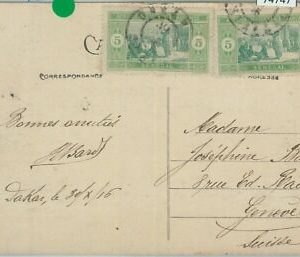 74747
DAKAR
5 5 5
SENEGAL
CORRESPONDANCE
ADRESSE
Bonnes amitiés
Dakar, le 30/X/16
Madame
Joséphine
8 rue Ed.
Genève
Suisse